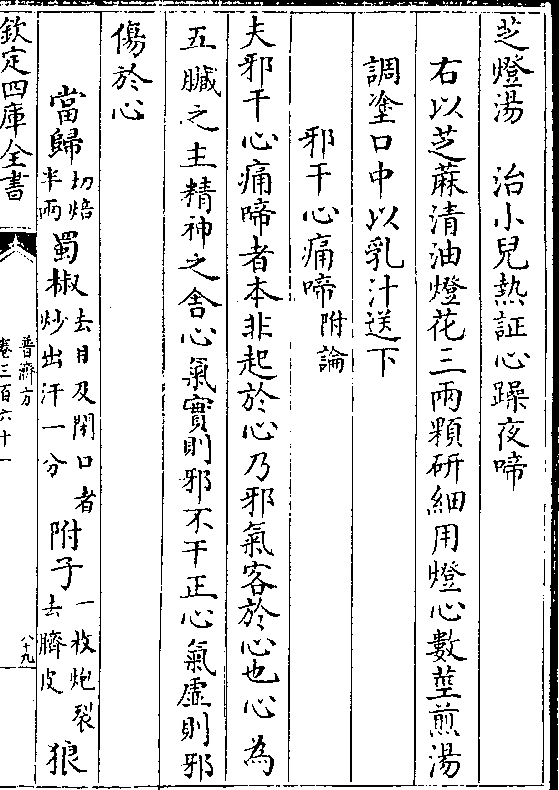 芝燈湯　治小兒熱証心躁夜啼
右以芝蔴清油燈花三兩顆研細用燈心數莖煎湯
調塗口中以乳汁送下
邪干心痛啼附論
夫邪干心痛啼者本非起於心乃邪氣客於心也心為
五臟之主精神之舍心氣實則邪不干正心氣虛則邪
傷於心
當歸切焙半兩　蜀椒去目及閉口者炒出汗一分　附子一枚炮裂去臍皮　狼
欽定四庫全書
普濟方
卷三百六十一
八十九